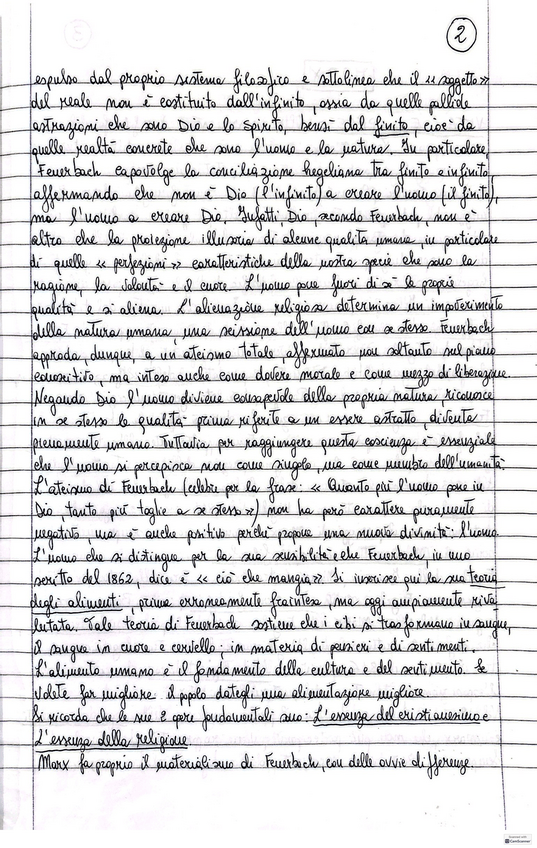 2
espulso dal proprio sistema filosofico e sottolinea che il «soggetto»
del reale non è costituito dall'infinito, ossia da quelle pallide
astrazioni che sono Dio e lo Spirito, bensì dal finito, cioè da
quelle realtà concrete che sono l'uomo e la natura. In particolare,
Feuerbach capovolge la conciliazione hegeliana tra finito e infinito
affermando che non è Dio (l'infinito) a creare l'uomo (il finito),
ma l'uomo a creare Dio. Infatti, Dio, secondo Feuerbach, non è
altro che la proiezione illusoria di alcune qualità umane, in particolare
di quelle «perfezioni» caratteristiche della nostra specie che sono la
ragione, la volontà e il cuore. L'uomo pone fuori di sè le proprie
qualità e si aliena. L'alienazione religiosa determina un impoverimento
della natura umana, una scissione dell'uomo con se stesso. Feuerbach
approda, dunque, a un ateismo totale, affermato non soltanto sul piano
conoscitivo, ma inteso anche come dovere morale e come mezzo di liberazione.
Negando Dio l'uomo diviene consapevole della propria natura, riconosce
in se stesso le qualità prima riferite a un essere astratto, diventa
pienamente umano. Tuttavia per raggiungere questa coscienza è essenziale
che l'uomo si percepisca non come singolo, ma come membro dell'umanità.
L'ateismo di Feuerbach (celebre per la frase: «Quanto più l'uomo pone in
Dio, tanto più toglie a se stesso») non ha però carattere puramente
negativo, ma è anche positivo perchè propone una nuova divinità: l'uomo.
L'uomo che si distingue per la sua sensibilità e che Feuerbach, in uno
scritto del 1862, dice è «ciò che mangia». Si inserisce qui la sua teoria
degli alimenti, prima erroneamente fraintesa, ma oggi ampiamente riva
lutata. Tale teoria di Feuerbach sostiene che i cibi si trasformano in sangue,
il sangue in cuore e cervello; in materia di pensieri e di sentimenti.
L'alimento umano è il fondamento della cultura e del sentimento. Se
volete far migliore il popolo dategli una alimentazione migliore.
Si ricorda che le sue 2 opere fondamentali sono: L'essenza del cristianesimo e
L'essenza della religione.
Marx fa proprio il materialismo di Feuerbach, con delle ovvie differenze.
Scanned with
CamScanner